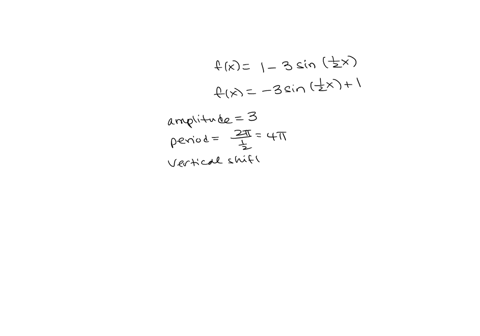 f(x) = 1 - 3 sin (1/2 x)
f(x) = -3 sin (1/2 x) + 1
amplitude = 3
period = 2π / 1/2 = 4π
vertical shif